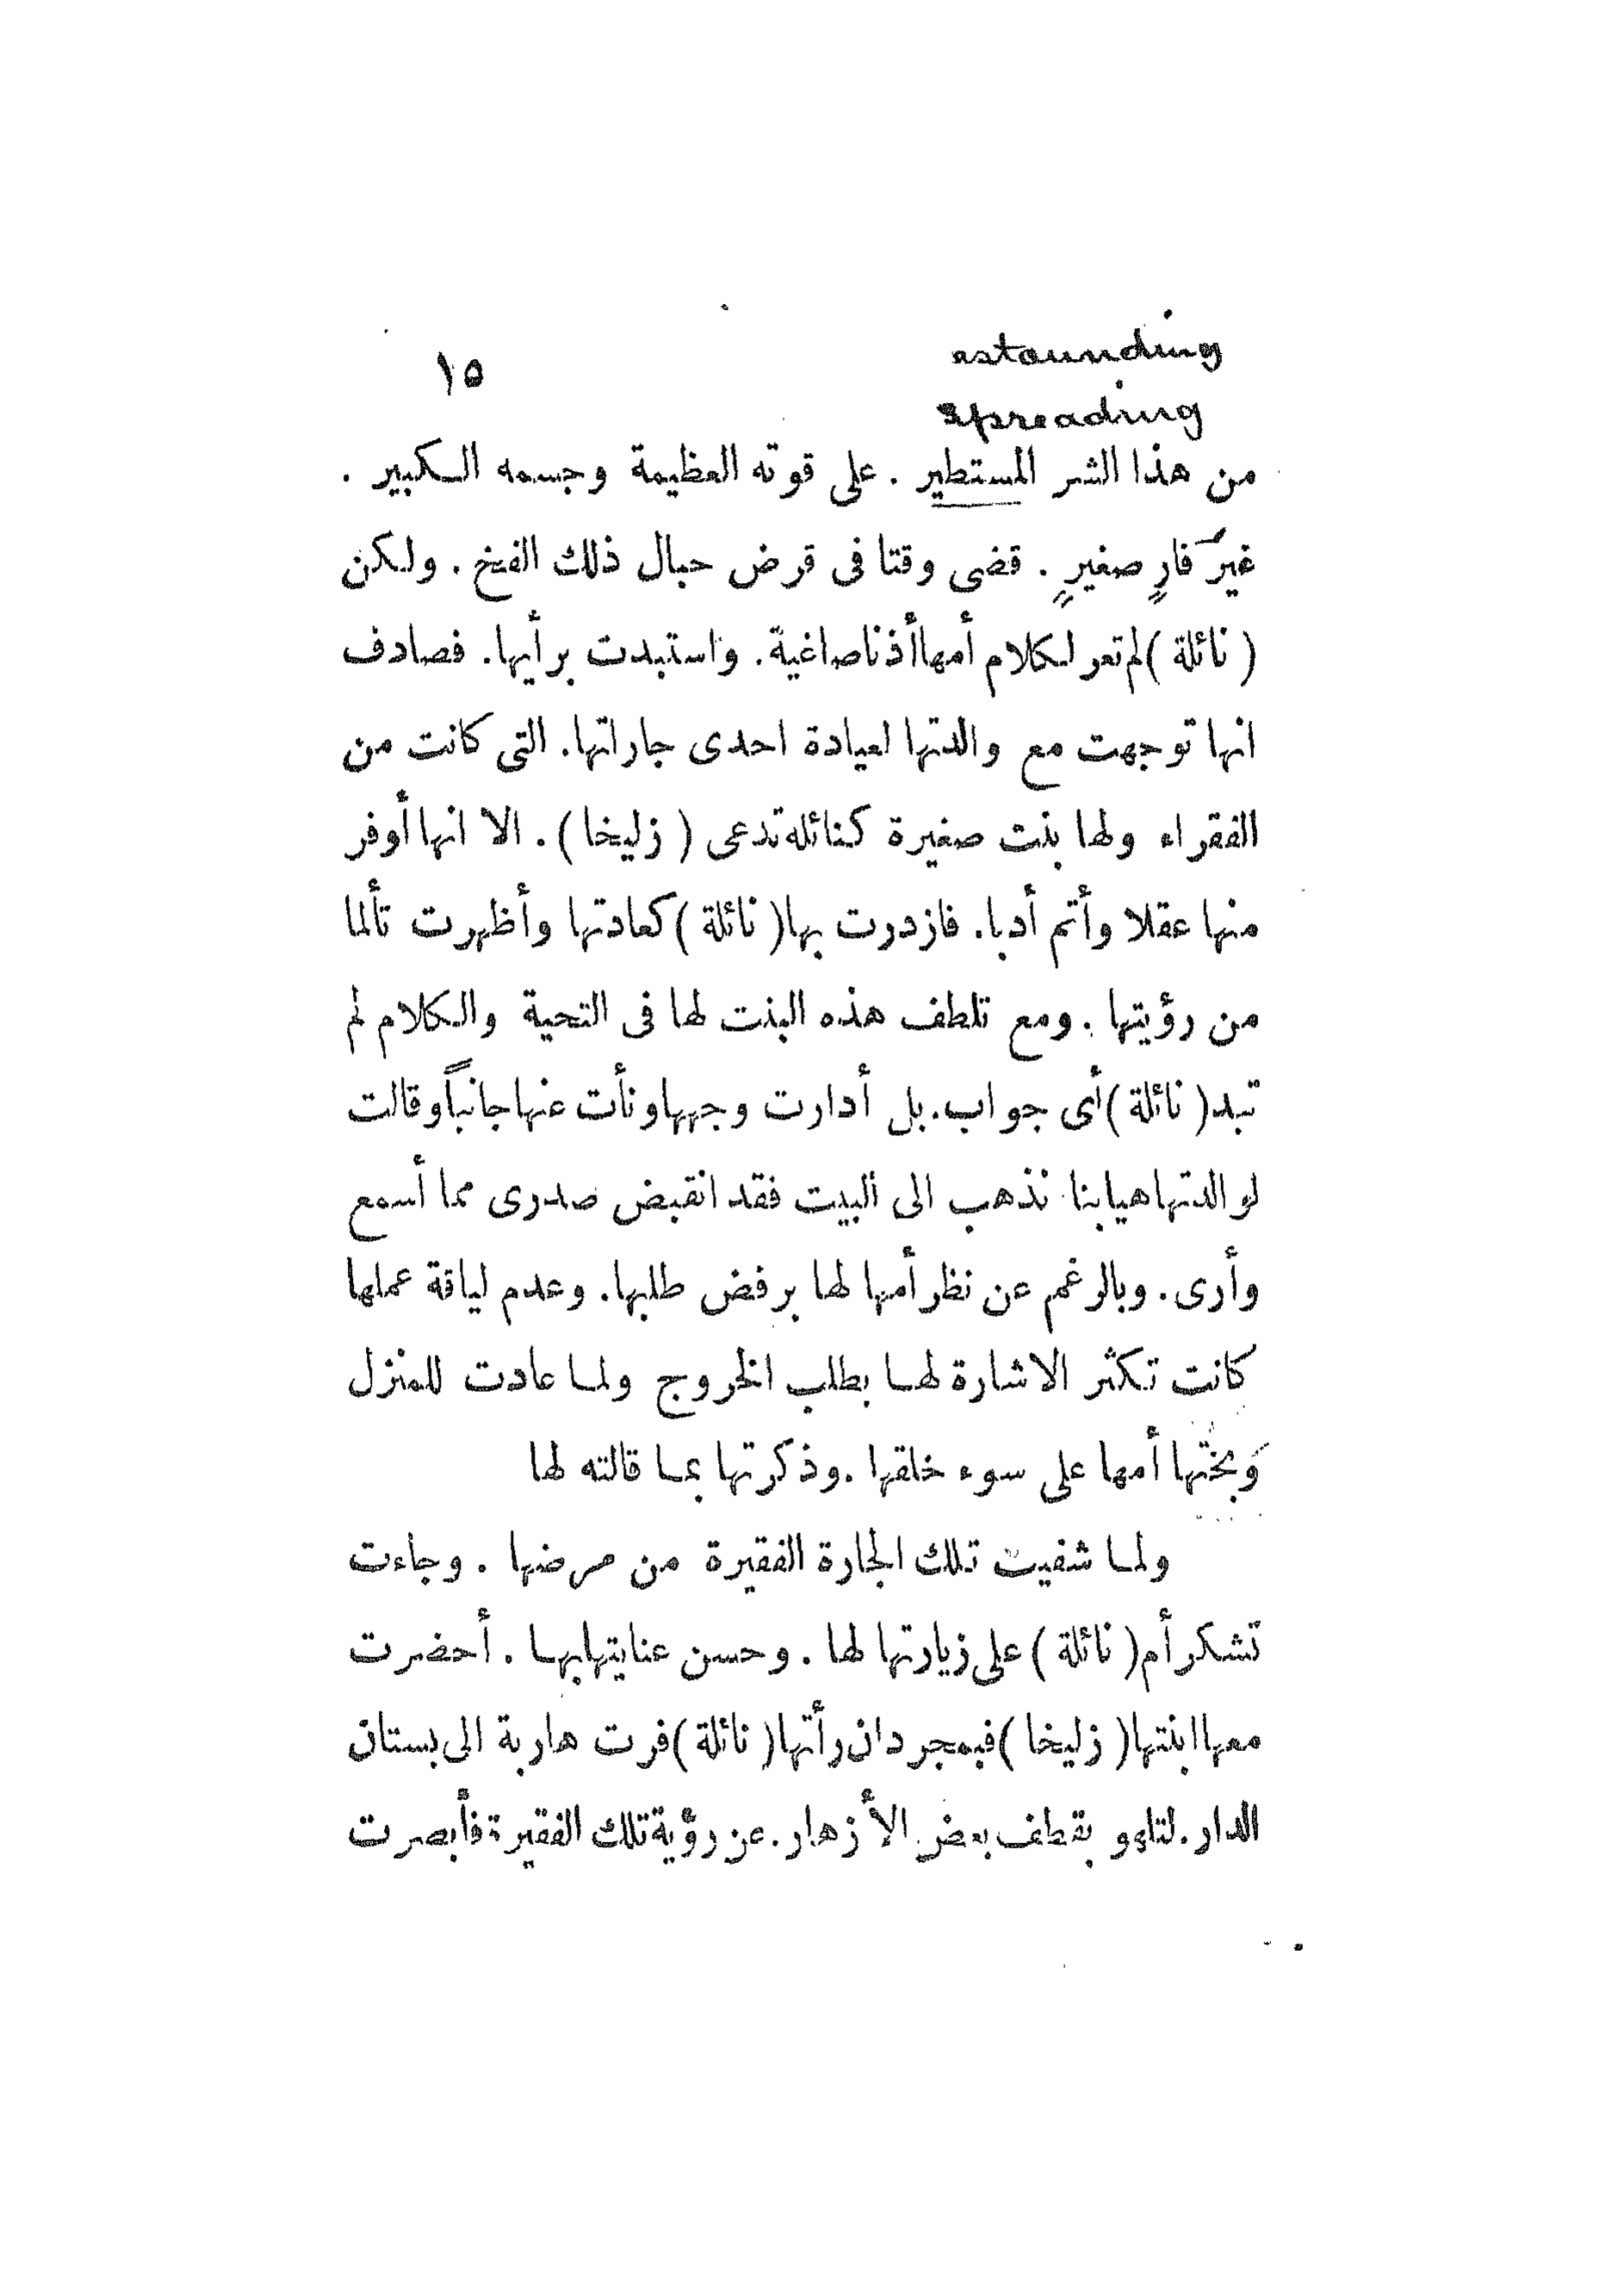 astounding
١٥
spreading
من هذا الشر المستطير . على قوته العظيمة وجسمه الكبير .
غيرَ فارٍ صغيرٍ . قضى وقتا فى قرض حبال ذلك الفخ . ولكن
( نائلة ) لم تعر لكلام أمها أذنا صاغية . واستبدت برأيها . فصادف
انها توجهت مع والدتها لعيادة احدى جاراتها . التى كانت من
الفقراء ولها بنت صغيرة كنائله تدعى ( زليخا ) . الا انها أوفر
منها عقلا وأتم أدبا . فازدرت بها ( نائلة ) كعادتها وأظهرت تألما
من رؤيتها . ومع تلطف هذه البنت لها فى التحية والكلام لم
تبد ( نائلة ) أى جواب . بل أدارت وجهها ونأت عنها جانباً وقالت
لوالدتها هيا بنا نذهب الى ألبيت فقد انقبض صدرى مما أسمع
وأرى . وبالرغم عن نظر أمها لها برفض طلبها . وعدم لياقة عملها
كانت تكثر الاشارة لها بطلب الخروج ولما عادت للمنزل
وَبختها أمها على سوء خلقها . وذكرتها بما قالته لها
ولما شفيت تلك الجارة الفقيرة من مرضها . وجاءت
تشكر أم ( نائلة ) على زيارتها لها . وحسن عنايتها بها . أحضرت
معها ابنتها ( زليخا ) فبمجرد ان رأتها ( نائلة ) فرت هاربة الى بستان
الدار . لتلهو بقطف بعض الأزهار . عن رؤية تلك الفقيرة فأبصرت